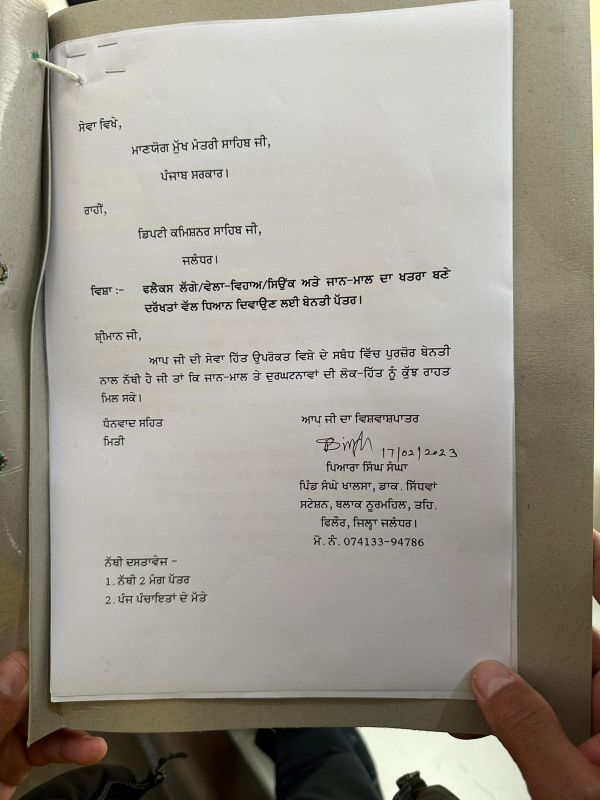 ਸੇਵਾ ਵਿਖੇ,
ਮਾਣਯੋਗ ਮੁੱਖ ਮੰਤਰੀ ਸਾਹਿਬ ਜੀ,
ਪੰਜਾਬ ਸਰਕਾਰ।
ਰਾਹੀਂ,
ਡਿਪਟੀ ਕਮਿਸ਼ਨਰ ਸਾਹਿਬ ਜੀ,
ਜਲੰਧਰ।
ਵਿਸ਼ਾ :- ਫਲੈਕਸ ਲੱਗੇ/ਵੇਲਾ-ਵਿਹਾਅ/ਸਿਉਂਕ ਅਤੇ ਜਾਨ-ਮਾਲ ਦਾ ਖਤਰਾ ਬਣੇ
ਦਰੱਖਤਾਂ ਵੱਲ ਧਿਆਨ ਦਿਵਾਉਣ ਲਈ ਬੇਨਤੀ ਪੱਤਰ।
ਸ਼੍ਰੀਮਾਨ ਜੀ,
ਆਪ ਜੀ ਦੀ ਸੇਵਾ ਹਿੱਤ ਉਪਰੋਕਤ ਵਿਸ਼ੇ ਦੇ ਸਬੰਧ ਵਿੱਚ ਪੁਰਜ਼ੋਰ ਬੇਨਤੀ
ਨਾਲ ਨੱਥੀ ਹੈ ਜੀ ਤਾਂ ਕਿ ਜਾਨ-ਮਾਲ ਤੇ ਦੁਰਘਟਨਾਵਾਂ ਦੀ ਲੋਕ-ਹਿੱਤ ਨੂੰ ਕੁੱਝ ਰਾਹਤ
ਮਿਲ ਸਕੇ।
ਧੰਨਵਾਦ ਸਹਿਤ
ਮਿਤੀ
ਆਪ ਜੀ ਦਾ ਵਿਸ਼ਵਾਸ਼ਪਾਤਰ
17/02/2023
ਪਿਆਰਾ ਸਿੰਘ ਸੰਘਾ
ਪਿੰਡ ਸੰਘੇ ਖਾਲਸਾ, ਡਾਕ. ਸਿੱਧਵਾਂ
ਸਟੇਸ਼ਨ, ਬਲਾਕ ਨੂਰਮਹਿਲ, ਤਹਿ.
ਫਿਲੌਰ, ਜਿਲ੍ਹਾ ਜਲੰਧਰ।
ਮੋ. ਨੰ. 074133-94786
ਨੱਥੀ ਦਸਤਾਵੇਜ –
1. ਨੱਥੀ 2 ਮੰਗ ਪੱਤਰ
2. ਪੰਜ ਪੰਚਾਇਤਾਂ ਦੇ ਮੱਤੇ